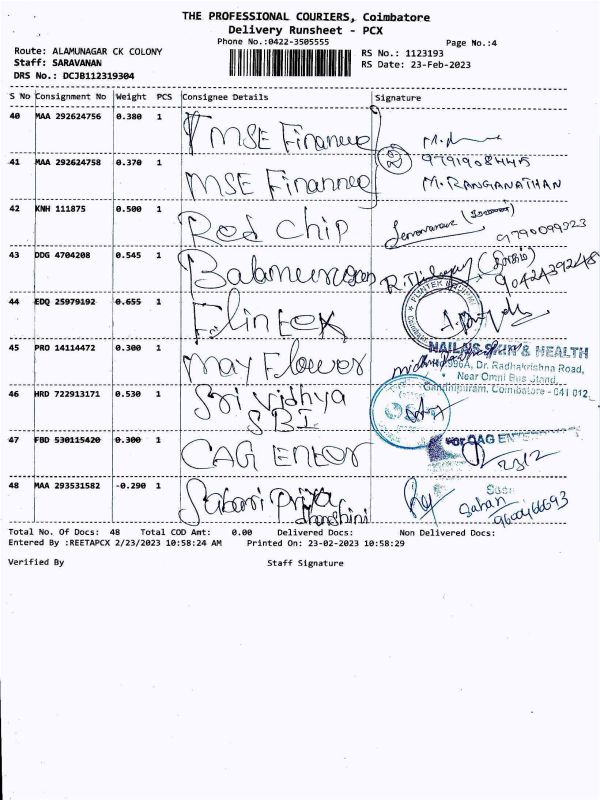 THE PROFESSIONAL COURIERS, Coimbatore
Delivery Runsheet - PCX
Phone No.:0422-3505555
Page No.:4
Route: ALAMUNAGAR CK COLONY
Staff: SARAVANAN
DRS No.: DCJB112319304
RS No.: 1123193
RS Date: 23-Feb-2023
S No Consignment No Weight PCS Consignee Details Signature
40 MAA 292624756 0.380 1 MSE Finance
41 MAA 292624758 0.370 1 MSE Finannce 2 9791908445
M. RANGANATHAN
42 KNH 111875 0.500 1 Red chip 9790099223
43 DDG 4704208 0.545 1 Balamurugan 9042439248
44 EDQ 25979192 0.655 1 Flintex
45 PRO 14114472 0.300 1 May Flower
NAILS SKIN & HEALTH
Dr. Radhakrishna Road,
Near Omni Bus Stand,
Gandhipuram, Coimbatore - 641 012
46 HRD 722913171 0.530 1 Sri Vidhya
SBI
47 FBD 530115420 0.300 1 CAG Enter For CAG ENTE
48 MAA 293531582 -0.290 1 Sabari Priya
dharshini
Sahan
9600466693
Total No. Of Docs: 48 Total COD Amt: 0.00 Delivered Docs: Non Delivered Docs:
Entered By :REETAPCX 2/23/2023 10:58:24 AM Printed On: 23-02-2023 10:58:29
Verified By Staff Signature